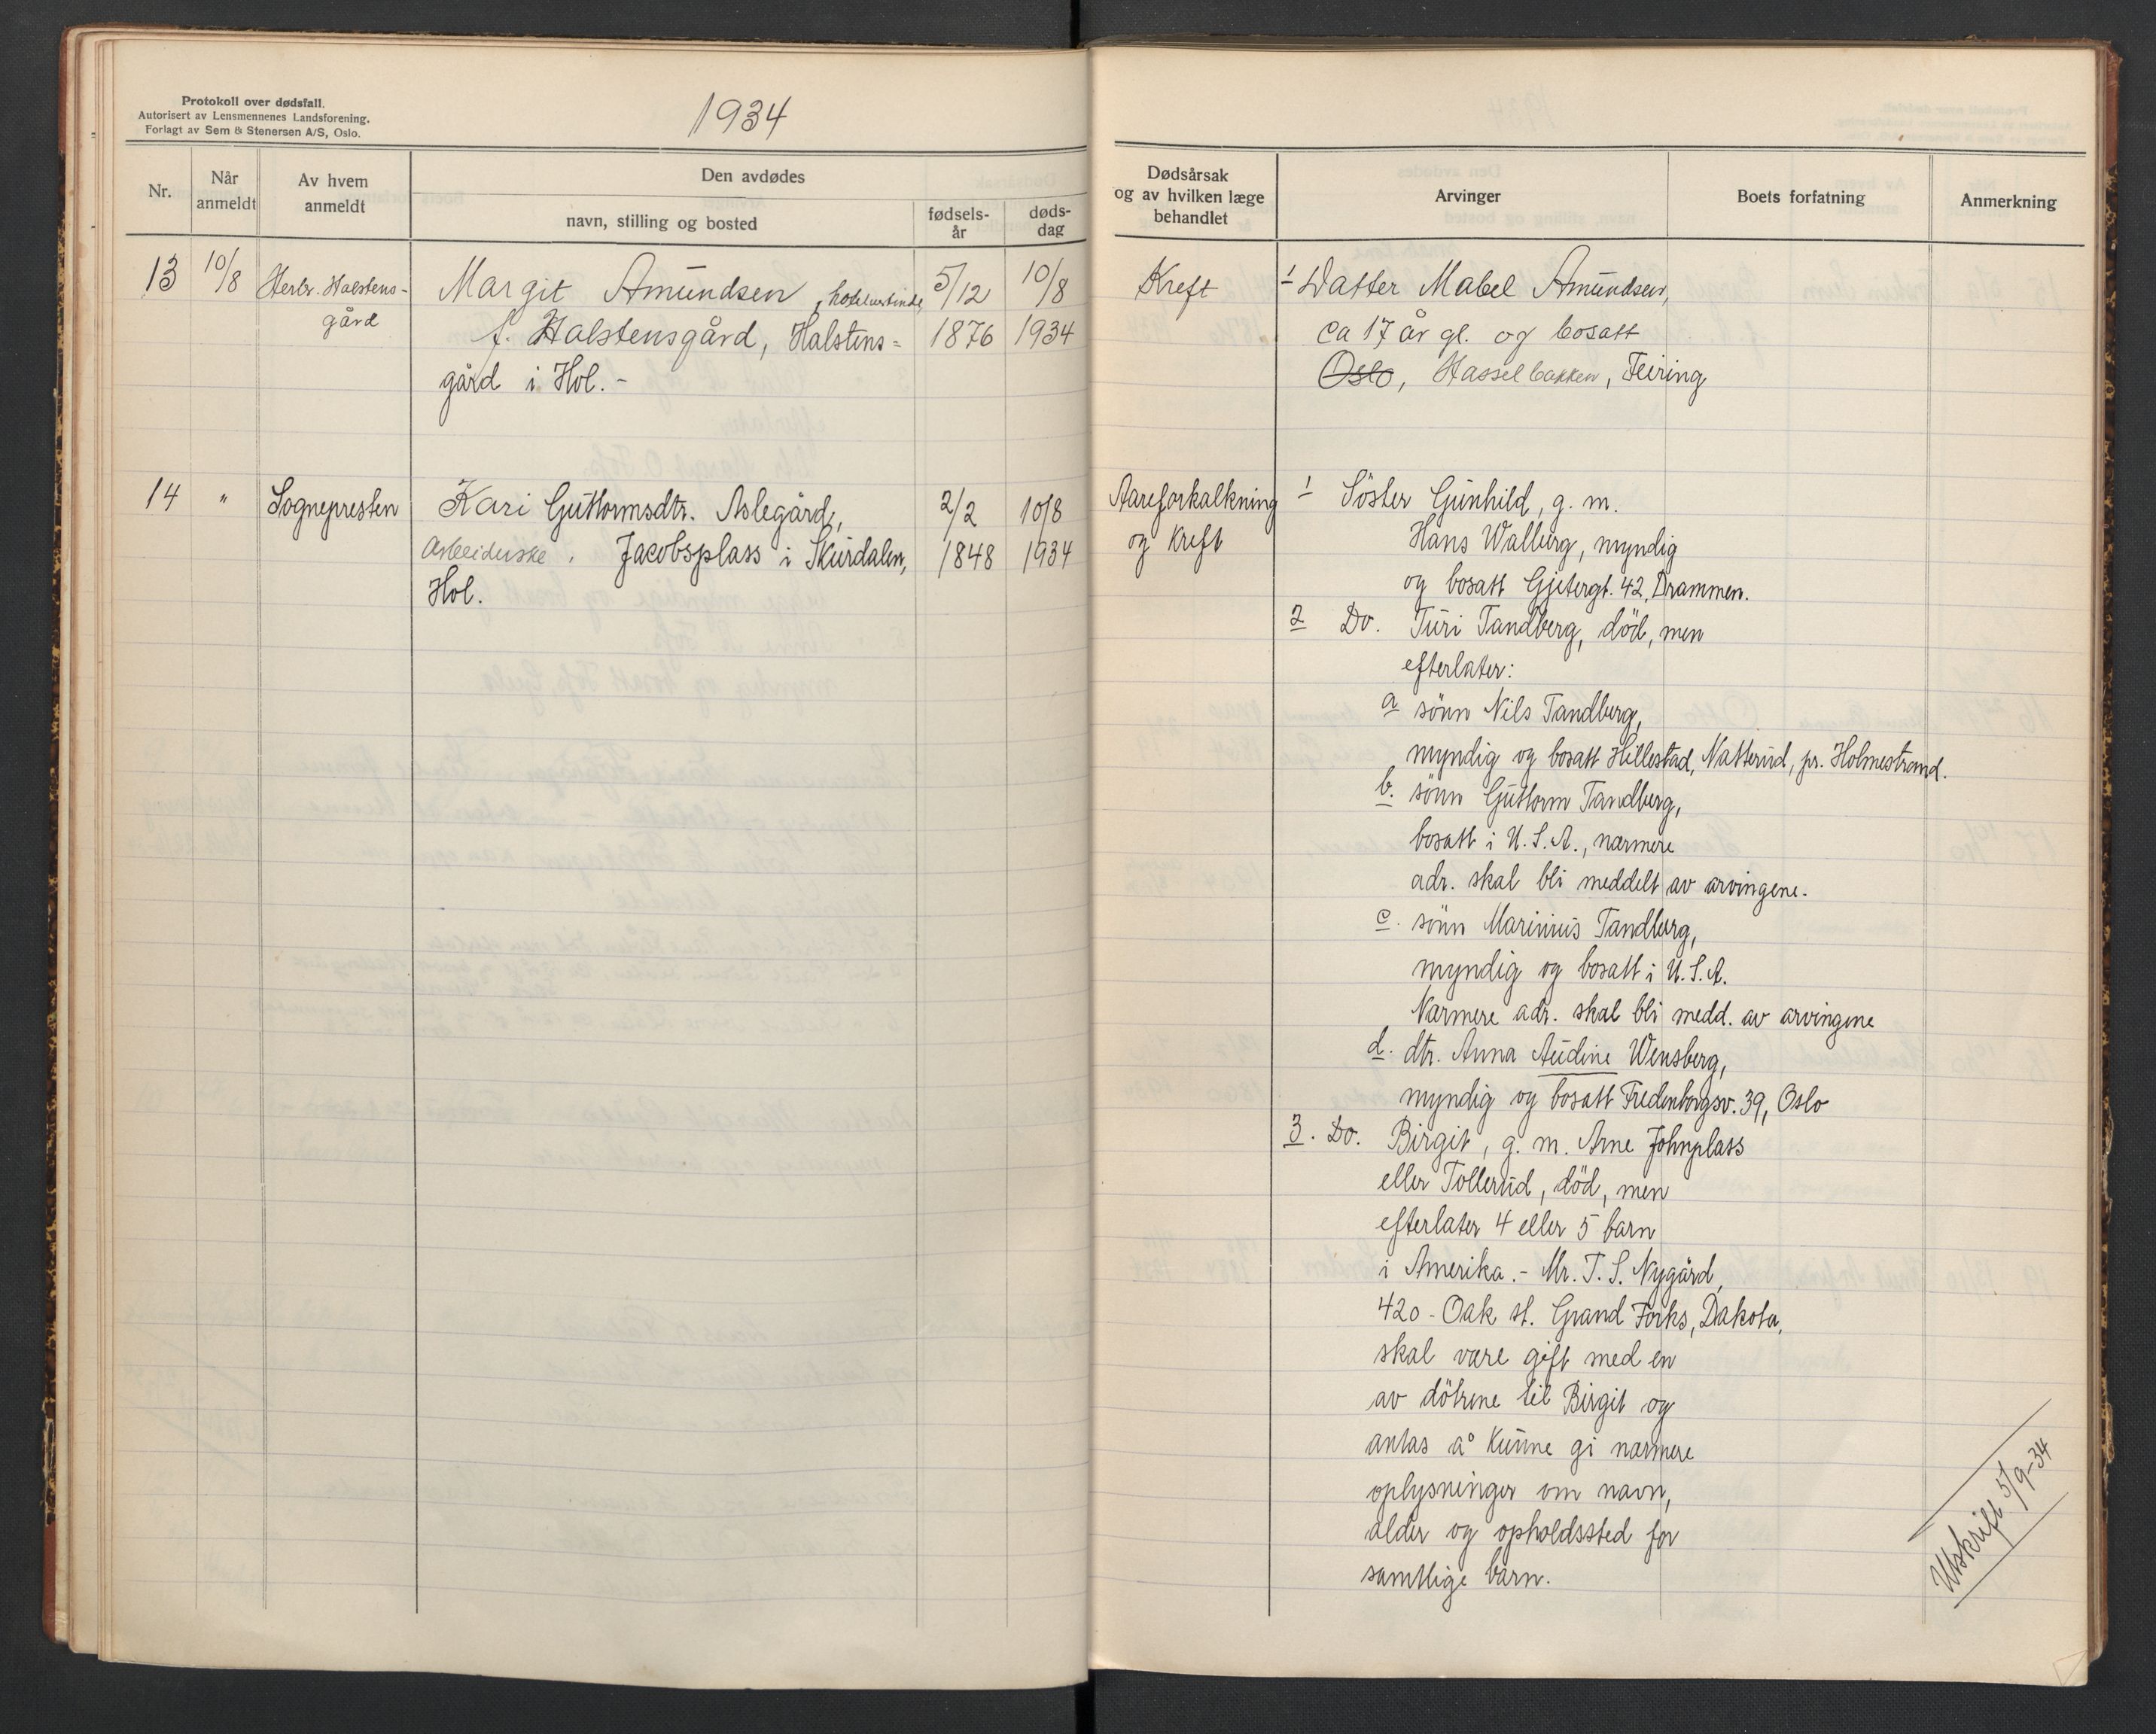 Protokoll over dødsfall.
Autorisert av Lensmennenes Landsforening.
Forlagt av Sem & Stenersen A/S, Oslo.
1934
Nr.
Når
anmeldt
Av hvem
anmeldt
Den avdødes
navn, stilling og bosted
fødsels-
år
døds-
dag
13
10/8
Herbr. Halstens-
gård
Margit Amundsen, hotelvertinde,
f. Halstensgård, Halstens-
gård i Hol. -
5/12
1876
10/8
1934
14
"
Sognepresten
Kari Guttormsdtr. Aslegård,
Arbeiderske. Jacobsplass i Skurdalen,
Hol.
2/2
1848
10/8
1934
Dødsårsak
og av hvilken læge
behandlet
Arvinger
Boets forfatning
Anmerkning
Kreft
1 Datter Mabel Amundsen,
ca 17 år gl. og bosatt
Oslo, Hasselbakken, Feiring
Aareforkalkning
og kreft
1 Söster Gunhild, g. m.
Hans Walberg, myndig
og bosatt Gjetergt. 42, Drammen.
2 Do. Turi Tandberg, död, men
efterlater:
a sönn Nils Tandberg,
myndig og bosatt Hillestad, Natterud, pr. Holmestrand.
b. sönn Guttorm Tandberg,
bosatt i U. S. A., nærmere
adr. skal bli meddelt av arvingene.
c. sönn Marinius Tandberg,
myndig og bosatt i U. S. A.
Nærmere adr. skal bli medd. av arvingene
d. dtr. Anna Audine Wensberg,
myndig og bosatt Fredenborgsv. 39, Oslo
3. Do. Birgit, g. m. Arne Johnplass
eller Tollerud, död, men
efterlater 4 eller 5 barn
i Amerika. - Mr. T. S. Nygård,
420 - Oak st. Grand Forks, Dakota,
skal være gift med en
av dötrene til Birgit og
antas å kunne gi nærmere
oplysninger om navn,
alder og opholdssted for
samtlige barn.
Utskrift 5/9-34